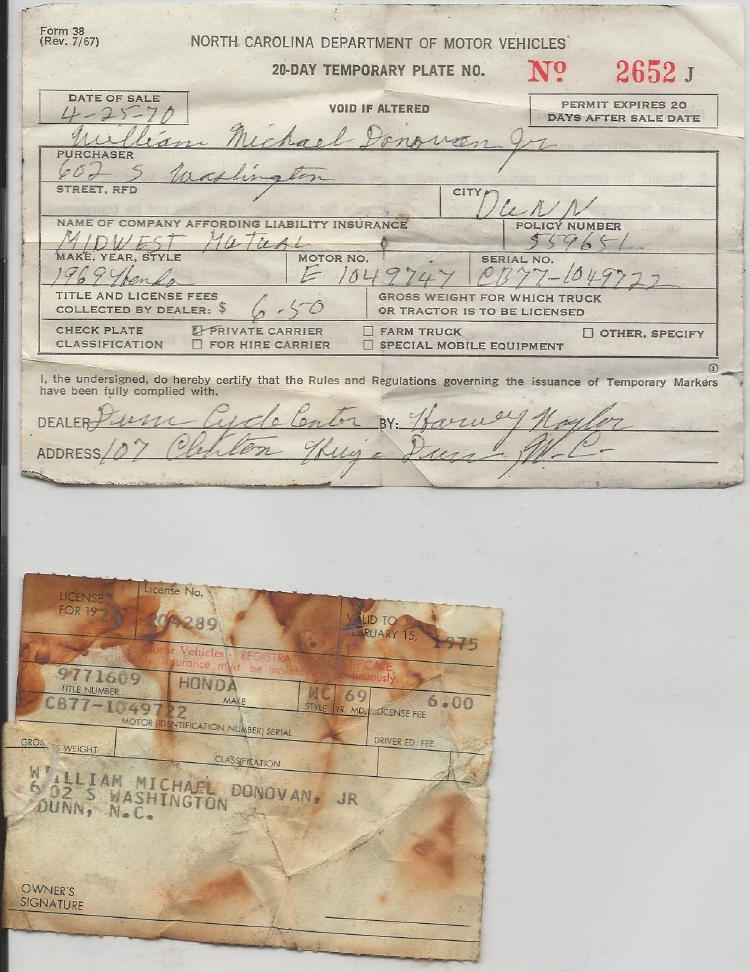 Form 38
(Rev. 7/67)
NORTH CAROLINA DEPARTMENT OF MOTOR VEHICLES
20-DAY TEMPORARY PLATE NO. Nº 2652 J
DATE OF SALE
4-25-70
VOID IF ALTERED
PERMIT EXPIRES 20
DAYS AFTER SALE DATE
William Michael Donovan Jr
PURCHASER
602 S Washington
STREET, RFD
CITY Dunn
NAME OF COMPANY AFFORDING LIABILITY INSURANCE
MIDWEST MUTUAL
POLICY NUMBER
559651
MAKE, YEAR, STYLE
1969 Honda
MOTOR NO.
E 1049747
SERIAL NO.
CB77-1049722
TITLE AND LICENSE FEES
COLLECTED BY DEALER: $ 6.50
GROSS WEIGHT FOR WHICH TRUCK
OR TRACTOR IS TO BE LICENSED
CHECK PLATE
CLASSIFICATION
PRIVATE CARRIER
FOR HIRE CARRIER
FARM TRUCK
SPECIAL MOBILE EQUIPMENT
OTHER, SPECIFY
I, the undersigned, do hereby certify that the Rules and Regulations governing the issuance of Temporary Markers
have been fully complied with.
DEALER Dunn Cycle Center BY: Harvey Naylor
ADDRESS 107 Clinton Dunn N.C.
LICENSE
FOR 19
License No.
204289
VALID TO
FEBRUARY 15, 1975
Motor Vehicles - REGISTRATION CERTIFICATE
insurance must be maintained continuously.
9771609
TITLE NUMBER
HONDA
MAKE
MC
STYLE
69
YR. MD.
6.00
LICENSE FEE
CB77-1049722
MOTOR (IDENTIFICATION NUMBER) SERIAL
DRIVER ED. FEE
GROSS WEIGHT
CLASSIFICATION
WILLIAM MICHAEL DONOVAN, JR
602 S WASHINGTON
DUNN, N.C.
OWNER'S
SIGNATURE